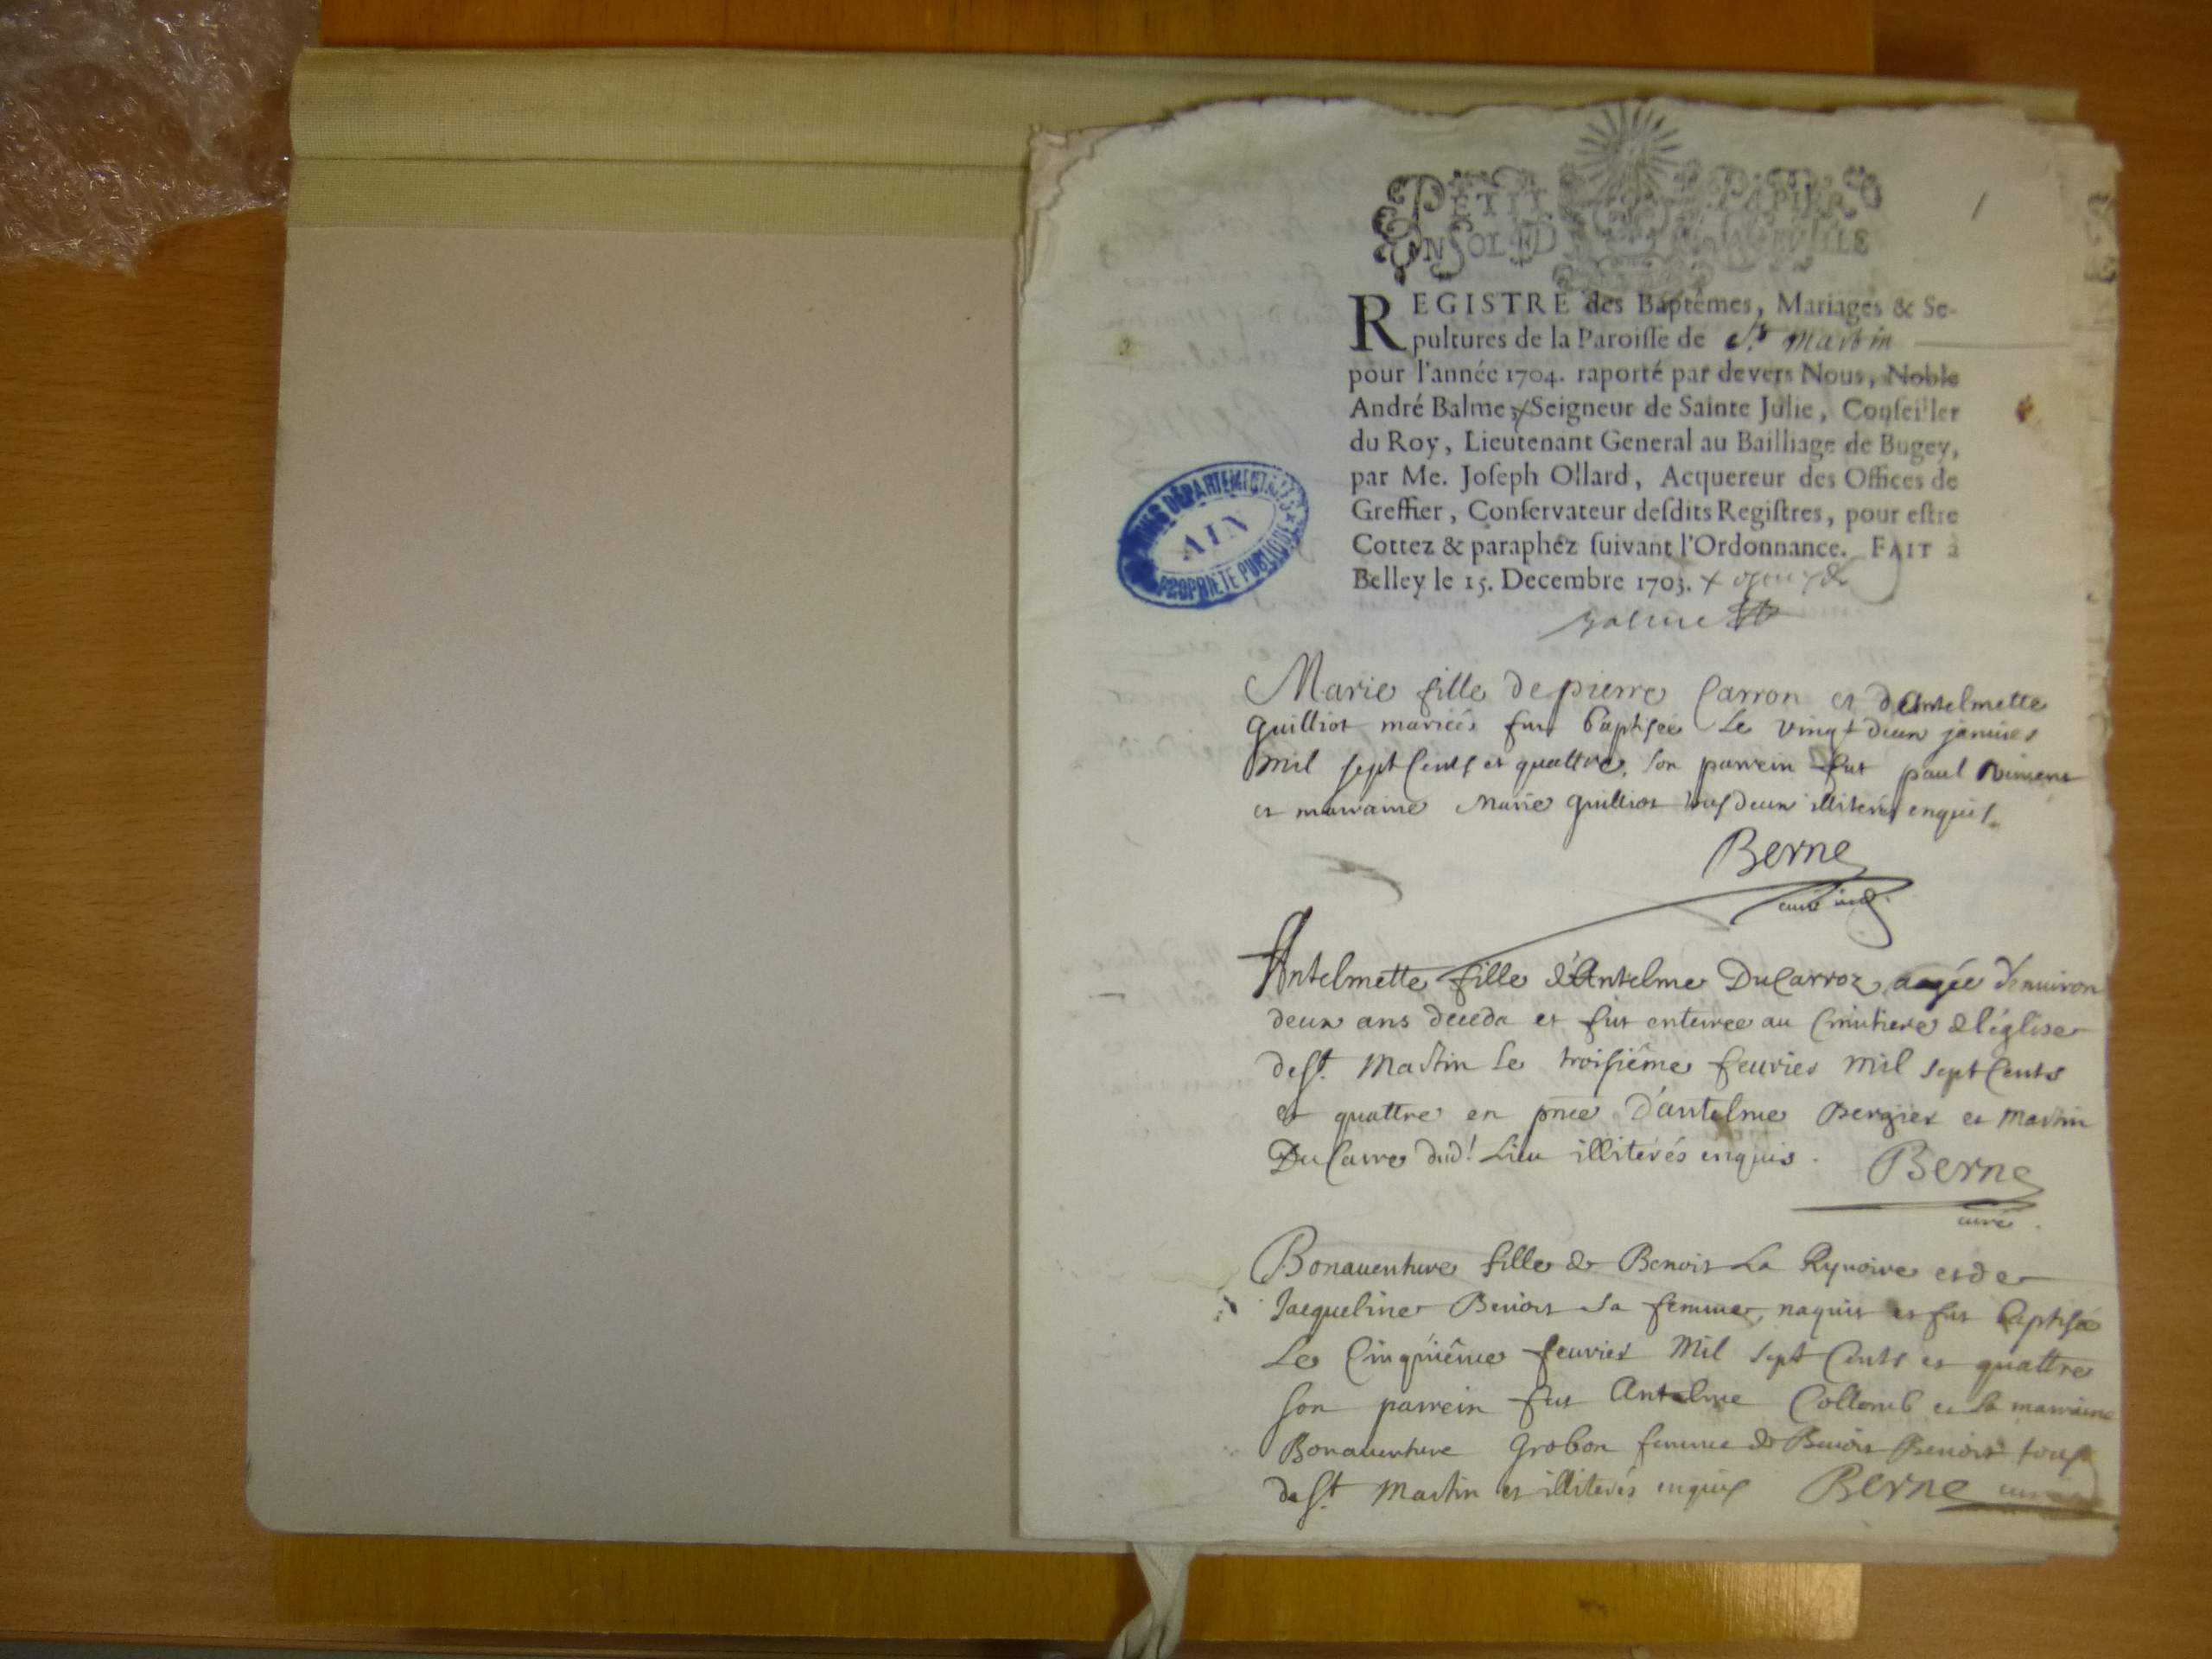 PETIT PAPIER
UN SOL
1
REGISTRE des Baptêmes, Mariages & Se-
pultures de la Paroiſſe de St Martin
pour l'année 1704. raporté par devers Nous, Noble
André Balme, Seigneur de Sainte Julie, Conſeiller
du Roy, Lieutenant General au Bailliage de Bugey,
par Me. Joſeph Ollard, Acquereur des Offices de
Greffier, Conſervateur deſdits Regiſtres, pour eſtre
Cottez & paraphez ſuivant l'Ordonnance. FAIT à
Belley le 15. Decembre 1703.
Balme
ARCHIVES DÉPARTEMENTALES
AIN
PROPRIÉTÉ PUBLIQUE
Marie fille de pierre Carron et d'Antelmette
guilliot mariés fut baptisée Le vingt deux janvier
mil sept Cents et quattre, son parrein fut paul
et marraine Marie guilliot tous deux illiterés enquis.
Berne
curé
Antelmette fille d'Antelme DuCarroz aagée d'enuiron
deux ans deceda et fut enterree au Cimitiere de l'église
de St. Martin Le troisiême feurier mil sept Cents
et quattre en pnce D'antelme Bergier et Martin
DuCarre dud! Lieu illiterés enquis. Berne
curé.
Bonauenture fille de Benoit La Ryuoire et de
Jacqueline Benoit sa femme, naquit et fut baptisée
Le Cinquiême feurier Mil sept Cents et quattre
son parrein fut Antelme Collomb et sa marraine
Bonauenture grobon femme de Benoit Benoit tous
de St. Martin et illiterés enquis Berne curé